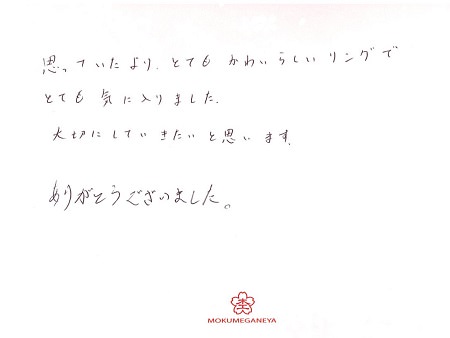 思っていたより、とてもかわいらしいリングで
とても気に入りました。
大切にしていきたいと思います。
ありがとうございました。
MOKUMEGANEYA